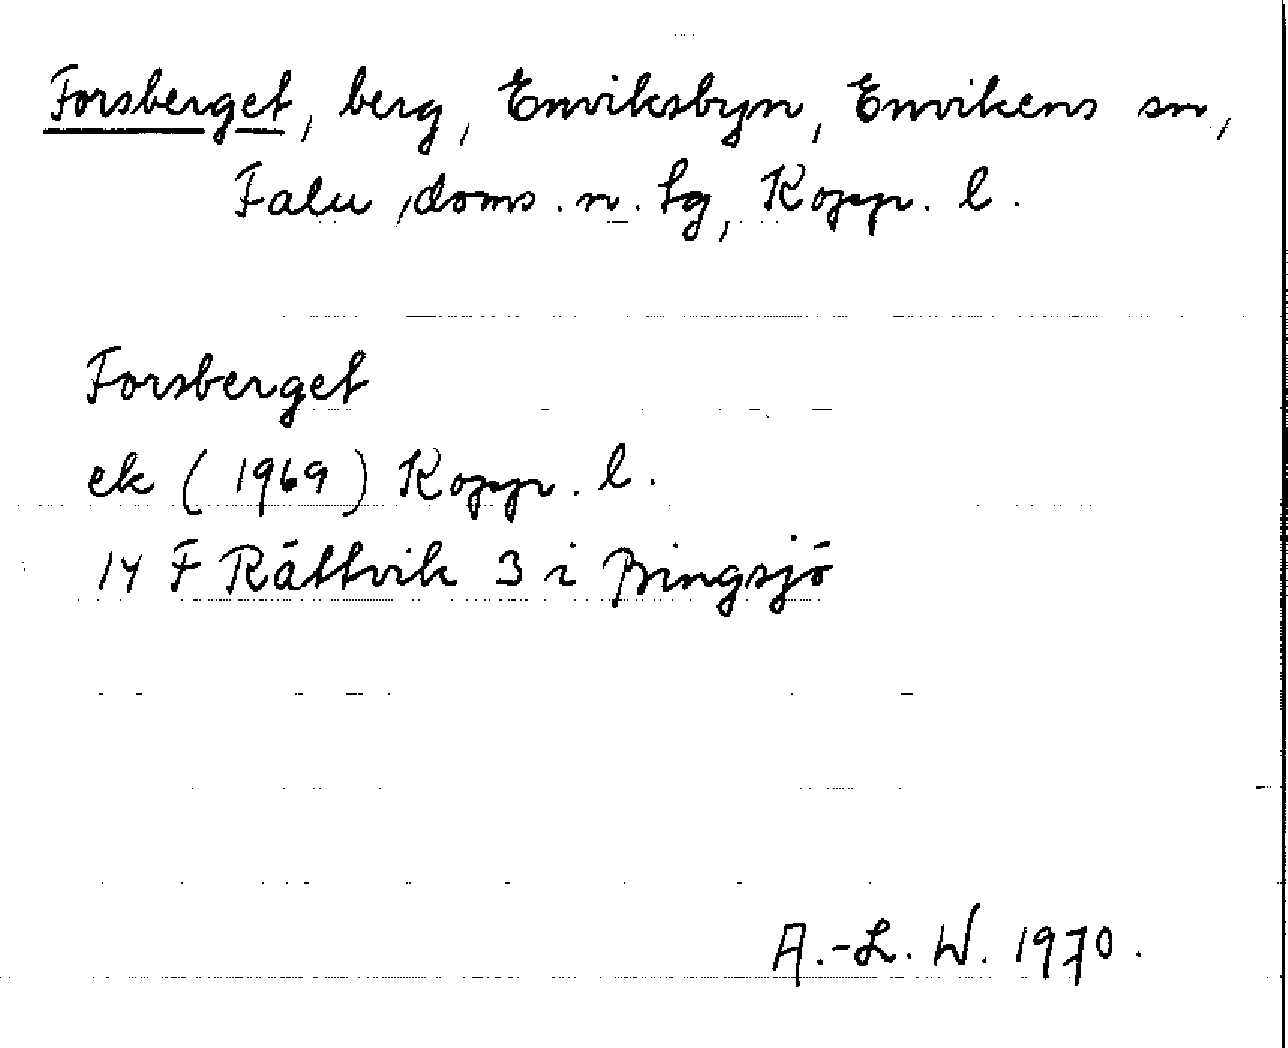 Forsberget, berg, Enviksbyn, Envikens sn,
Falu doms. n. tg, Kopp. l.
Forsberget
ek (1969) Kopp. l.
14 F Rättvik 3 i Bingsjö
A.-L. W. 1970.